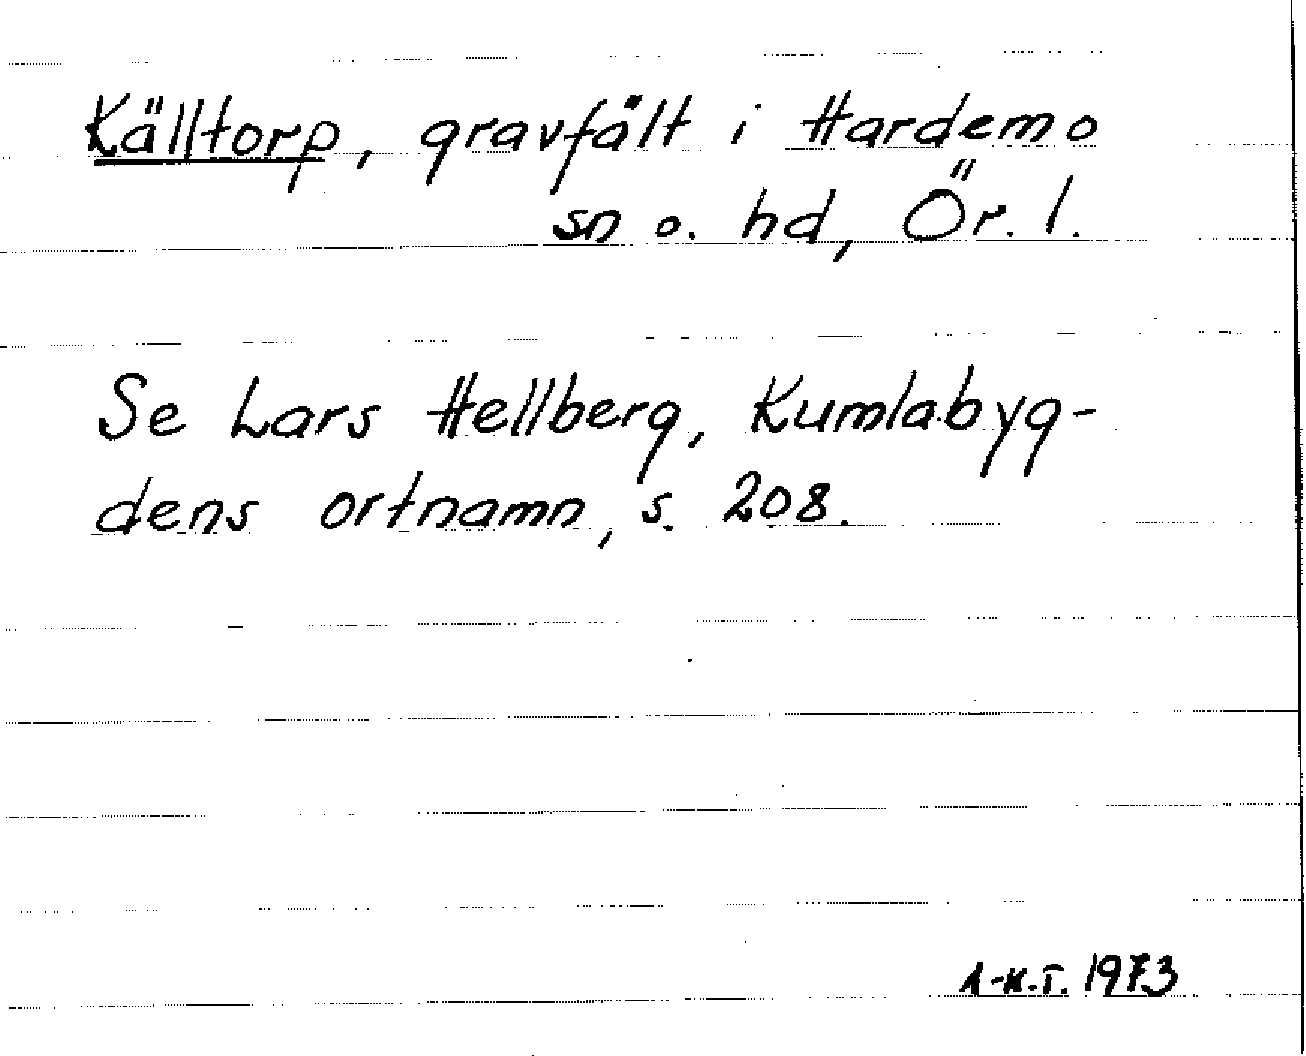 Källtorp, gravfält i Hardemo
sn o. hd, Ör. l.
Se Lars Hellberg, Kumlabyg-
dens ortnamn, s. 208.
A-K.T. 1973